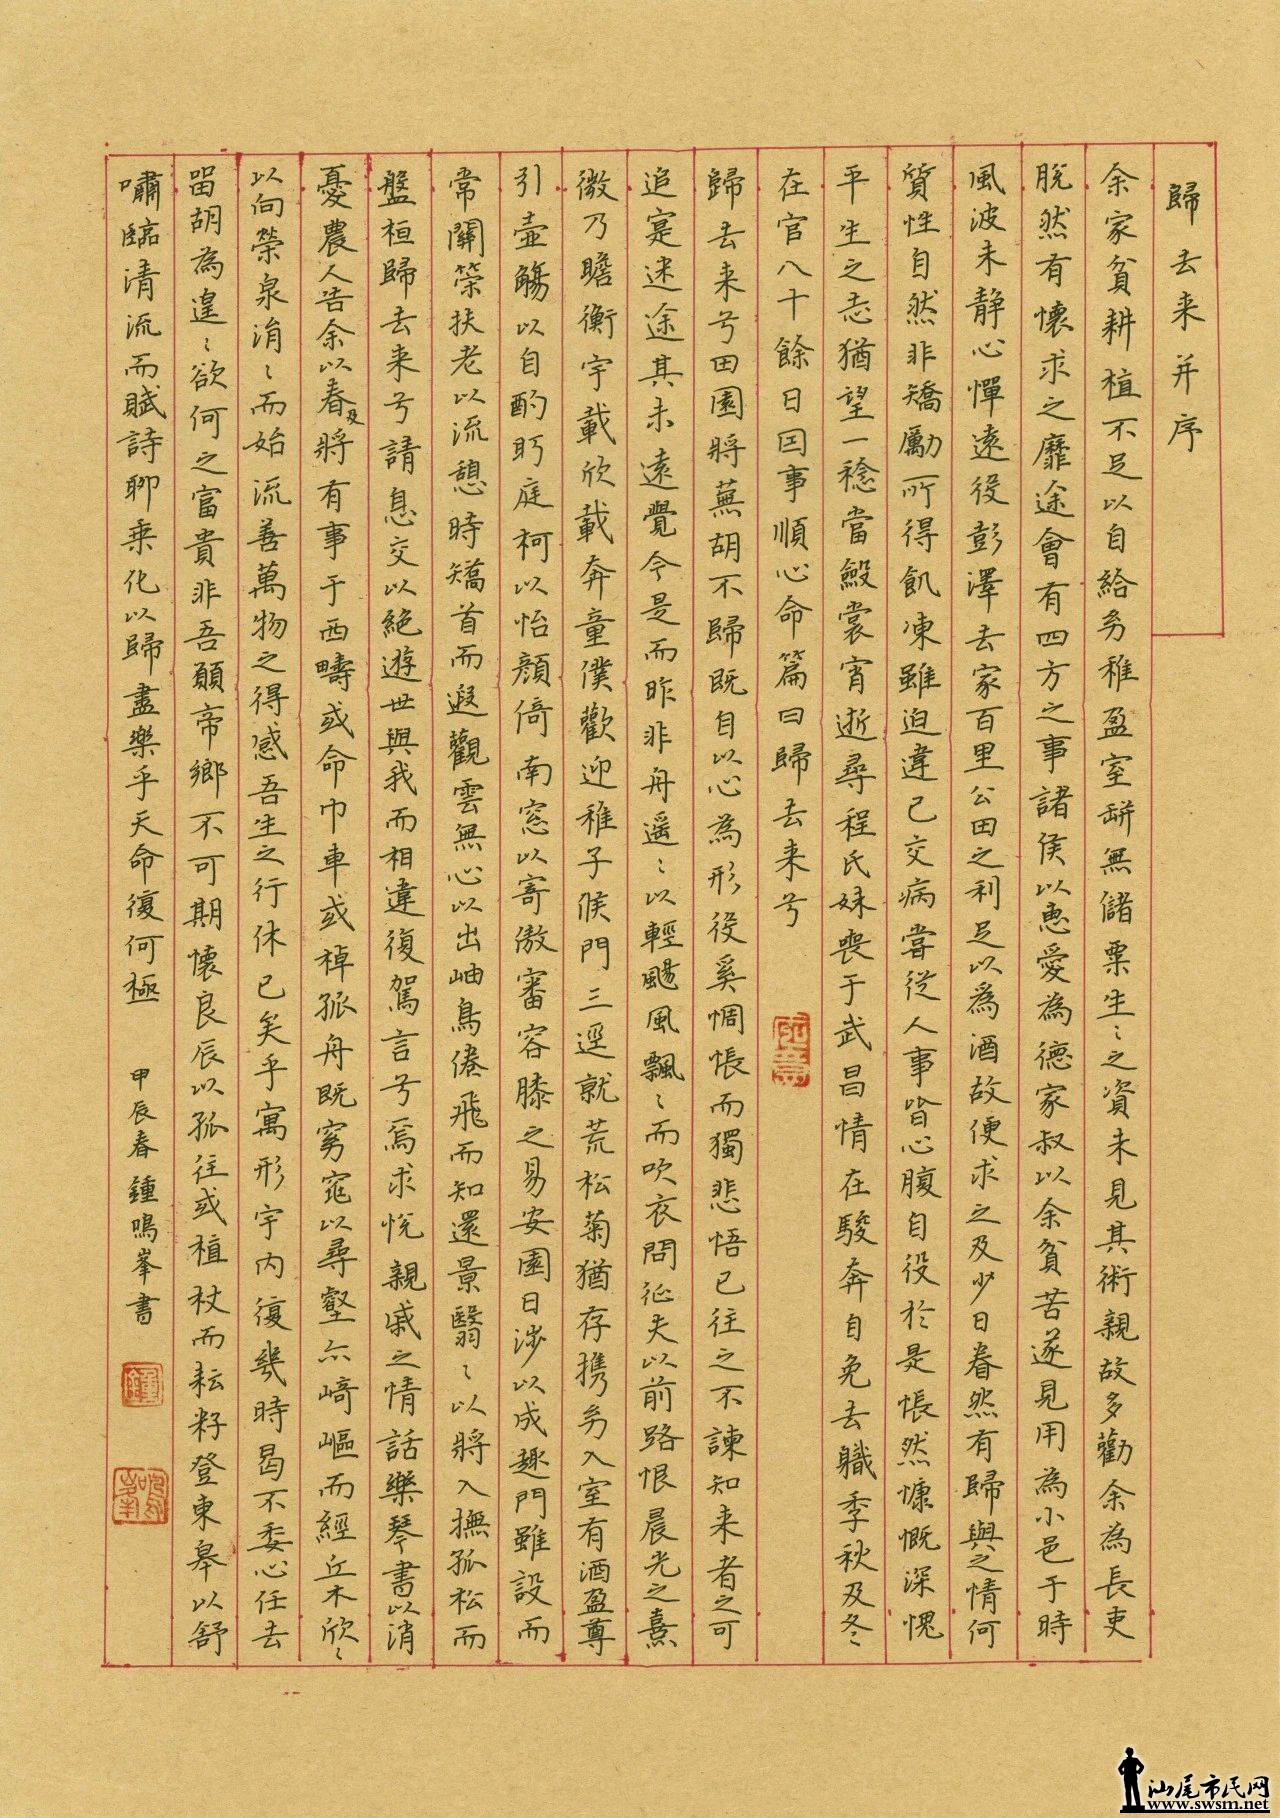 歸去来并序
余家貧耕植不足以自給㓜稚盈室缾無儲粟生〻之資未見其術親故多勸余為長吏
脫然有懷求之靡途會有四方之事諸侯以惠愛為德家叔以余貧苦遂見用為小邑于時
風波未静心憚遠役彭澤去家百里公田之利足以為酒故便求之及少日眷然有歸與之情何
質性自然非矯勵所得飢凍雖迫違已交病嘗從人事皆心腹自役於是悵然慷慨深愧
平生之志猶望一稔當斂裳宵逝尋程氏妹喪于武昌情在駿奔自免去職季秋及冬〻
在官八十餘日囙事順心命篇曰歸去来兮
歸去来兮田園將蕪胡不歸既自以心為形役奚惆悵而獨悲悟已往之不諫知来者之可
追寔迷途其未遠覺今是而昨非舟遥〻以輕颺風飄〻而吹衣問征夫以前路恨晨光之熹
微乃瞻衡宇載欣載奔童僕歡迎稚子候門三逕就荒松菊猶存攜㓜入室有酒盈尊
引壺觴以自酌眄庭柯以怡顏倚南窓以寄傲審容膝之易安園日涉以成趣門雖設而
常關荣扶老以流憩時矯首而遐觀雲無心以出岫鳥倦飛而知還景翳〻以將入撫孤松而
盤桓歸去来兮請息交以絕遊世與我而相違復駕言兮焉求悅親戚之情話樂琴書以消
憂農人告余以春及將有事于西疇或命巾車或棹孤舟既窈窕以尋壑亦崎嶇而經丘木欣〻
以向榮泉涓〻而始流善萬物之得感吾生之行休已矣乎寓形宇内復幾時曷不委心任去
留胡為遑〻欲何之富貴非吾願帝鄉不可期懷良辰以孤往或植杖而耘耔登東皋以舒
嘯臨清流而賦詩聊乘化以歸盡樂乎天命復何極 甲辰春鍾鳴峯書
汕尾市民网
www.swsm.net